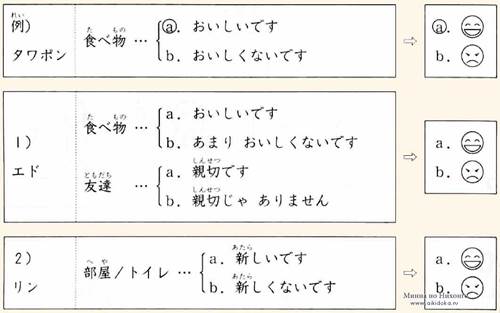 例) れい
タワポン
食べ物 … たもの
a. おいしいです
b. おいしくないです
⇨ a.
b.
1)
エド
食べ物 … たもの
a. おいしいです
b. あまり おいしくないです
友達 … ともだち
a. 親切です しんせつ
b. 親切じゃ ありません しんせつ
⇨ a.
b.
2)
リン
部屋/トイレ … へや
a. 新しいです あたら
b. 新しくないです あたら
⇨ a.
b.
Минна но Нихонго
www.aikidoka.ru